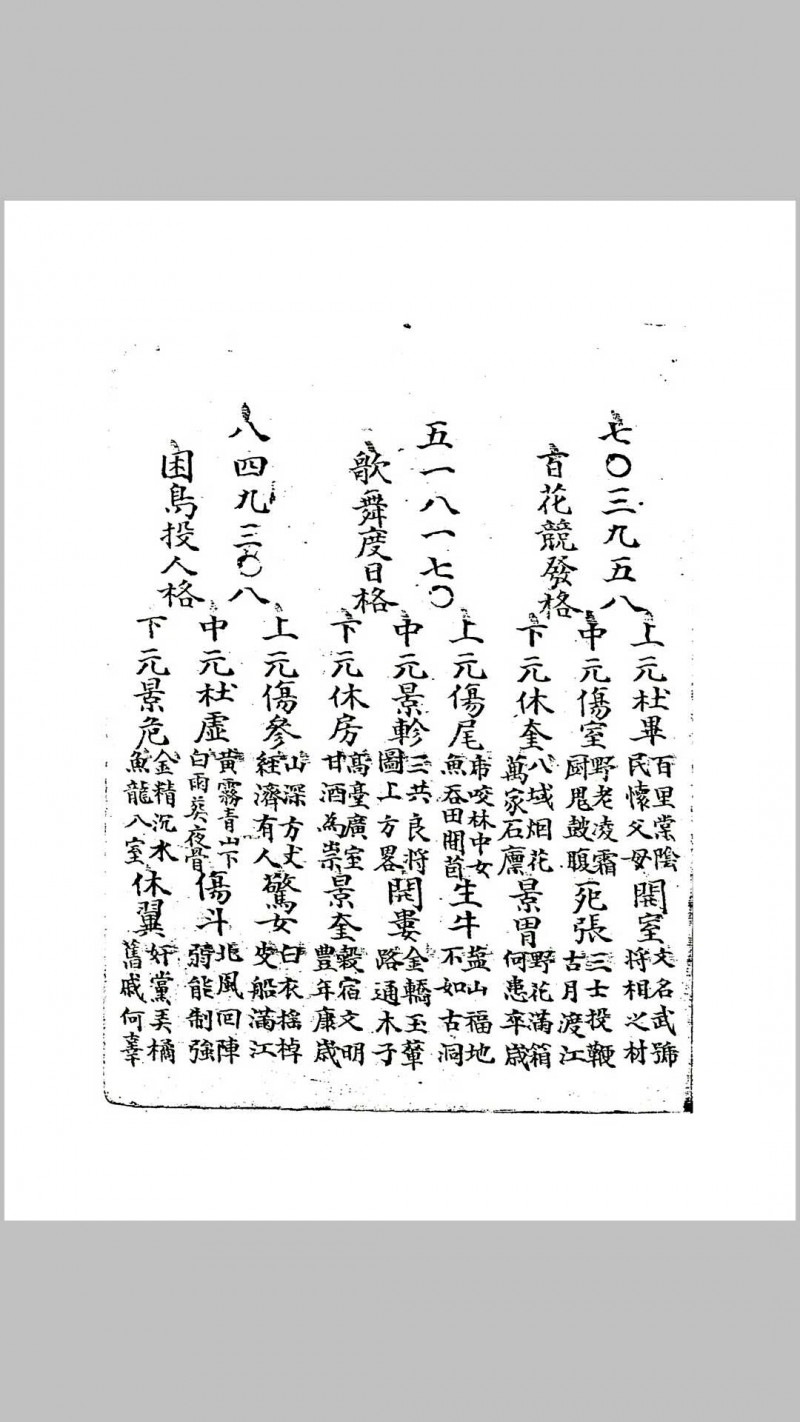 七〇三九五八
百花競發格
上元杜畢
百里棠陰
民懷父母
開室
文名武號
將相之材
中元傷室
野老凌霜
厨鬼鼓腹
死張
三士投鞭
古月渡江
下元休奎
八域烟花
萬家石廩
景胃
野花滿箱
何患卒歲
五一八一七〇
歌舞度日格
上元傷尾
虎咬林中女
魚吞田間苗
生牛
益山福地
不如古洞
中元景軫
三共良將
圖上方畧
開婁
金轎玉輦
路通木子
下元休房
高臺廣室
甘酒為崇
景奎
穀宿文明
豊年康歲
八四九三〇八
困鳥投人格
上元傷參
山深方丈
経濟有人
驚女
白衣搖棹
戈船滿江
中元杜虛
黃霧青山下
白雨葵夜骨
傷斗
北風回陣
弱能制強
下元景危
金精沉水
魚龍八室
休翼
奸黨美橘
舊戚何辜